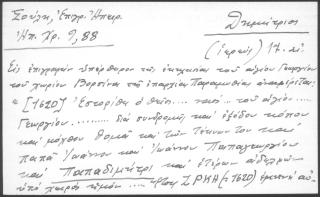 Σούλη, Ἐπιγρ. Ἠπειρ.
Ἠπ. Χρ. 9, 88
Δημήτριος
(ἱερεύς) 17. αἰ.
Εἰς ἐπιγραφὴν ὑπέρθυρον τῆς ἐκκλησίας τοῦ ἁγίου Γεωργίου
τοῦ χωρίου Βορτίνα τῆς ἐπαρχίας Παραμυθίας ἀναφέρεται:
« [1620] Ἐστορίθι ὁ θεῖος .... ναὸς .. τοῦ ἁγίου ....
Γεωργίου ......... διὰ συνδρομῆς καὶ ἐξόδου κόπου
καὶ μόχθου θομᾶ καὶ τῶν τέκνων του καὶ
παπᾶ Ἰωάννου καὶ Ἰωάννου Παπαγεωργίου
καὶ Παπαδιμίτρι καὶ ἑτέρων ἀδελφῶν
ὑπὸ χειρὸς ..... ἔτους ΖΡΚΗ (=1620)